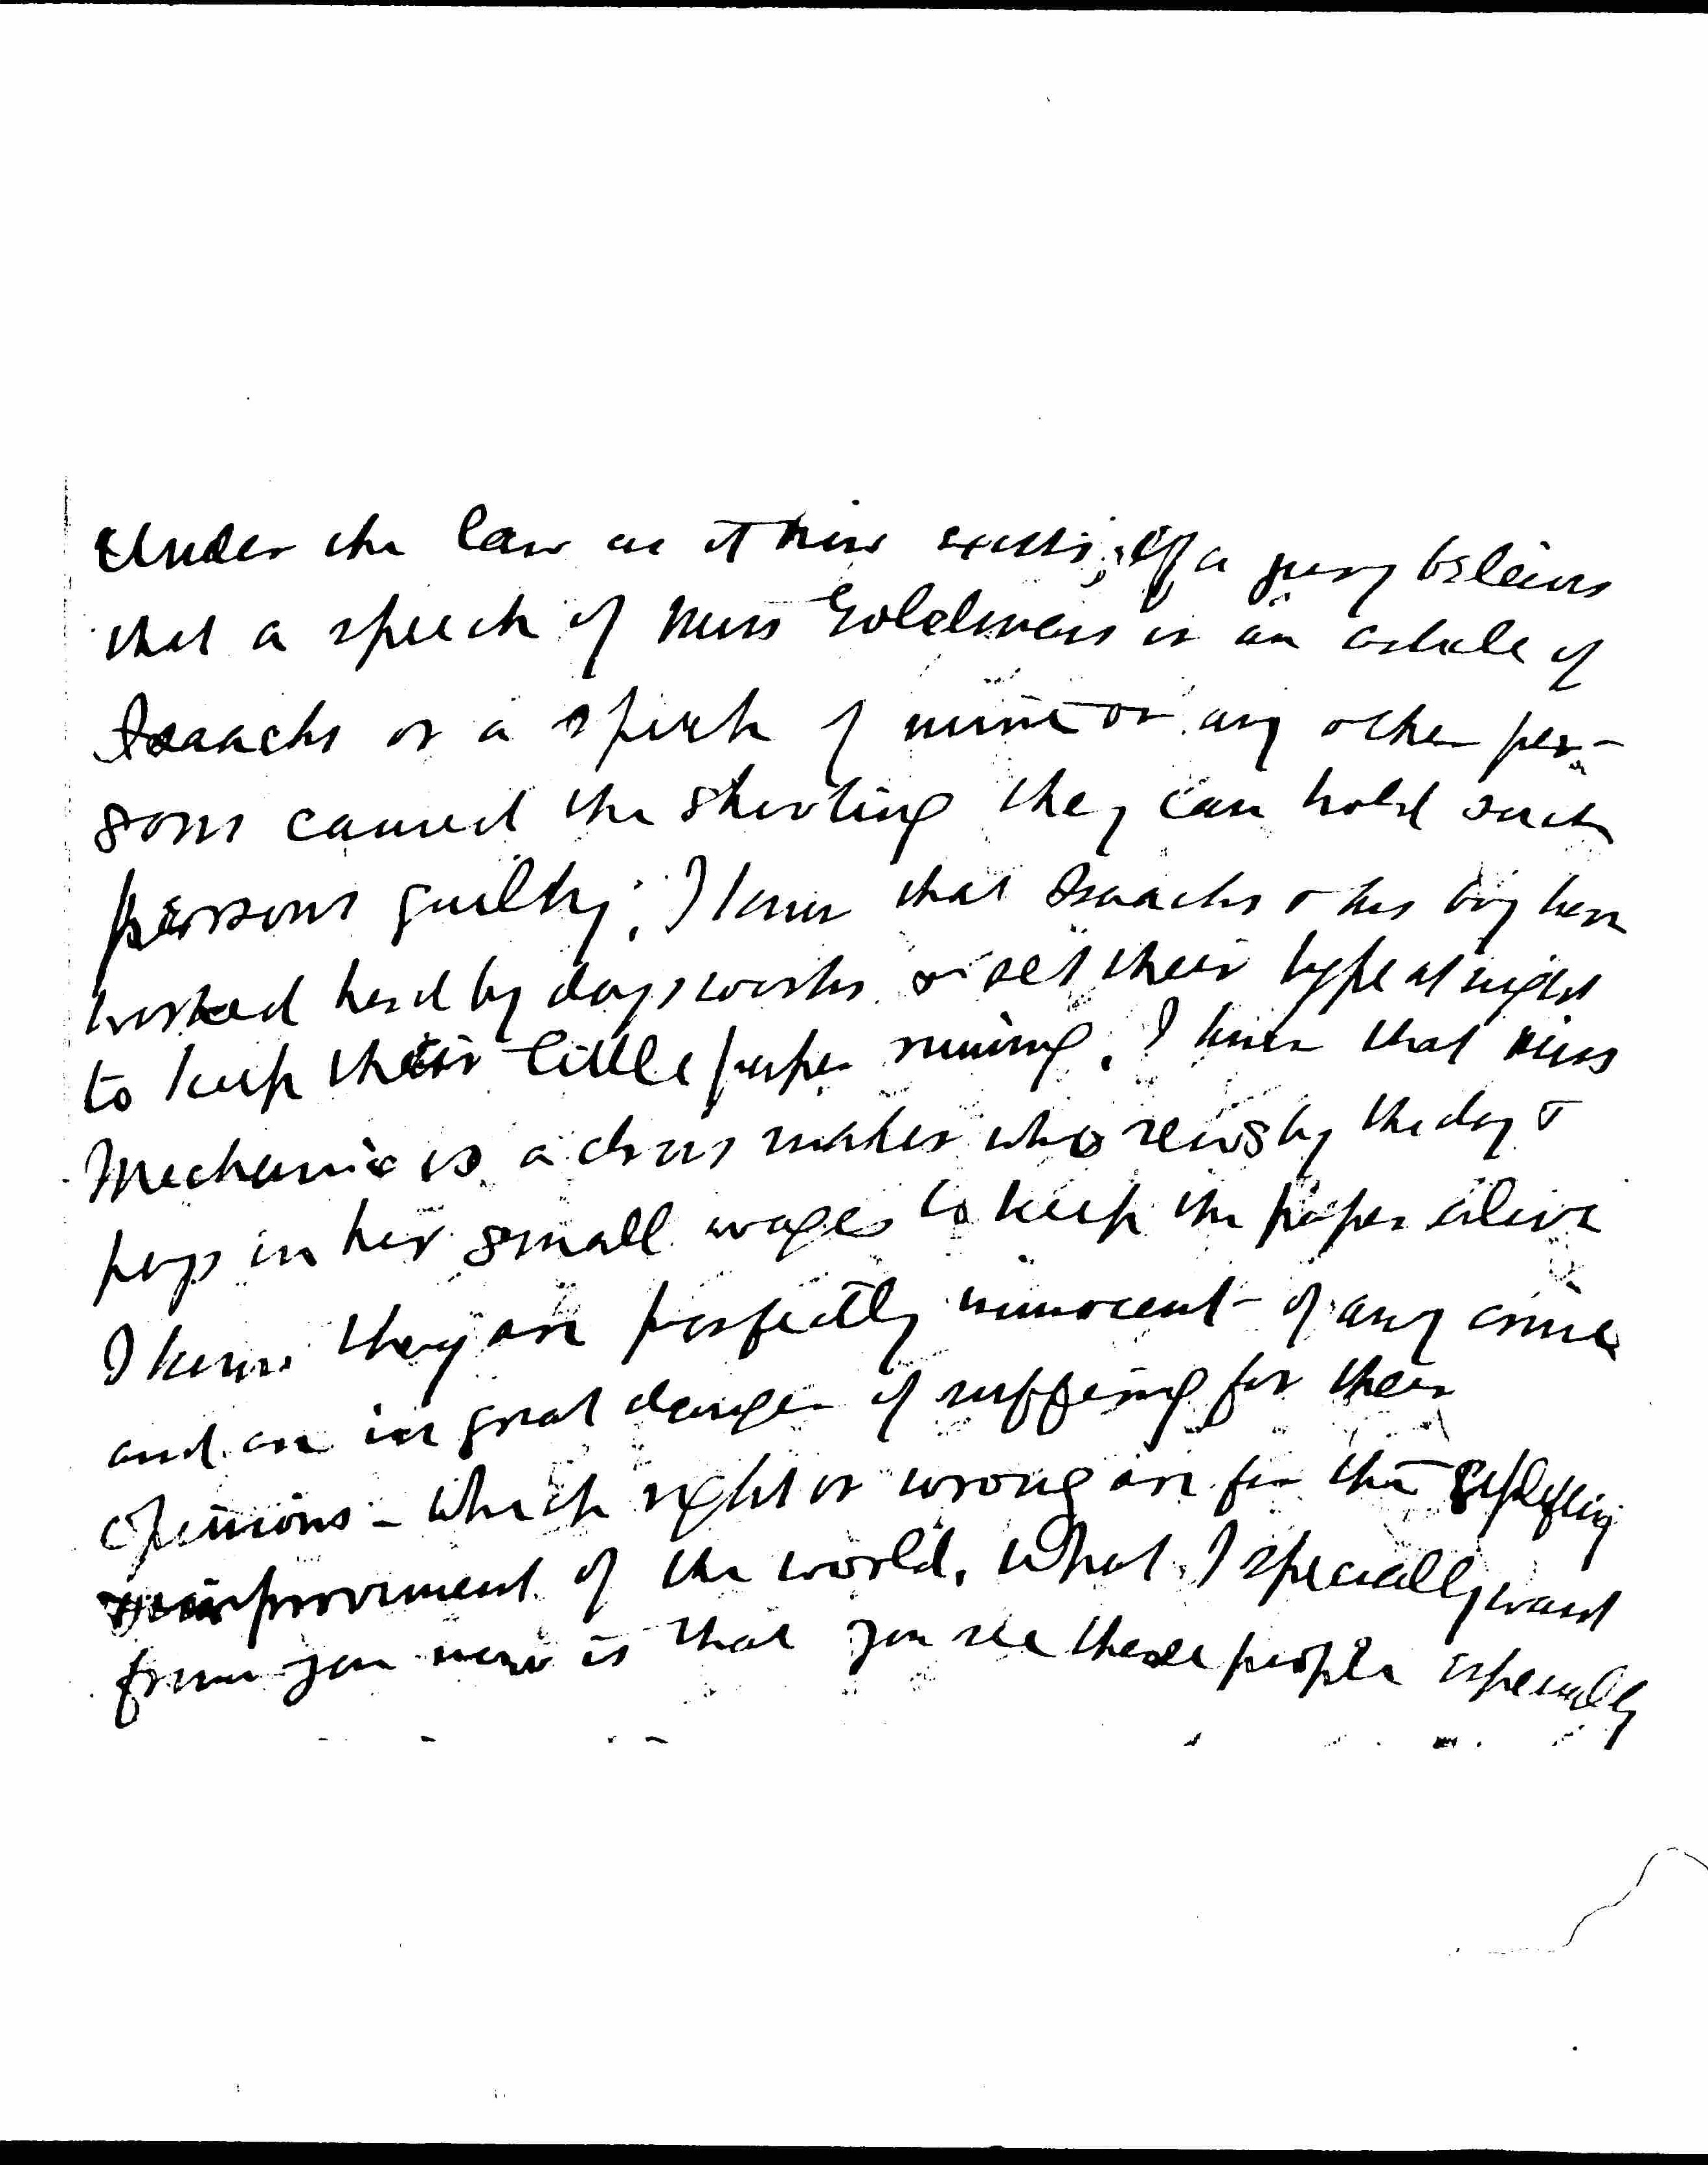 Under the law as it now exists, if a jury believes
that a speech of Miss Goldmans or an article of
Isaacks or a speech of mine or any other per-
sons caused the shooting they can hold such
persons guilty; I know that Isaacks & his boy have
worked hard by days works & set their type at night
to keep their little paper running. I know that Miss
Mechanic is a dress maker who sews by the day &
pays in her small wages to keep the paper alive
I know they are perfectly innocent of any crime
and are in great danger of suffering for their
opinions - which right or wrong are for the
improvement of the world. What I specially want
from you now is that you see these people especially